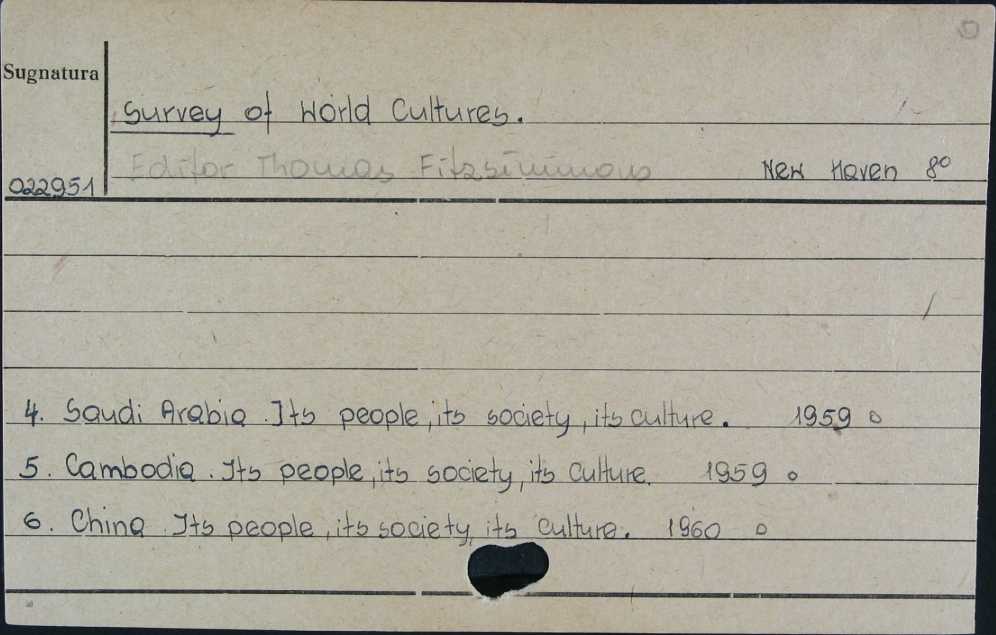 Sugnatura
Survey of World Cultures.
Editor Thomas Fitzsimmons New Haven 8°
022951
4. Saudi Arabia. Its people, its society, its culture. 1959 o
5. Cambodia. Its people, its society, its culture. 1959 o
6. China Its people, its society, its culture. 1960 o